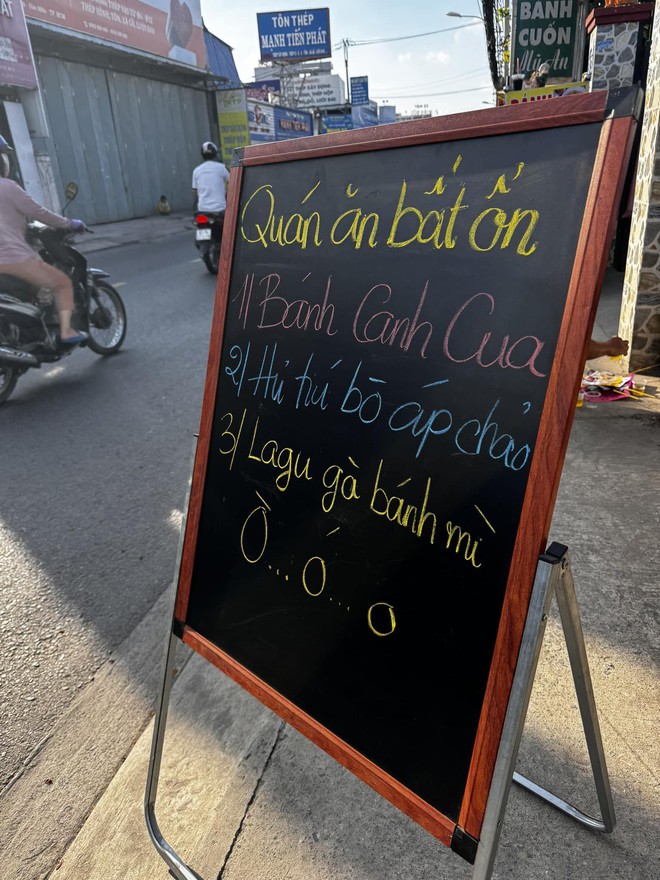 TÔN THÉP
MẠNH TIẾN PHÁT
BÁNH
CUỐN
Mỹ An
Quán ăn bất ổn
1) Bánh Canh Cua
2) Hủ tiú bò áp chảo
3) Lagu gà bánh mì
Ồ... Ố... O